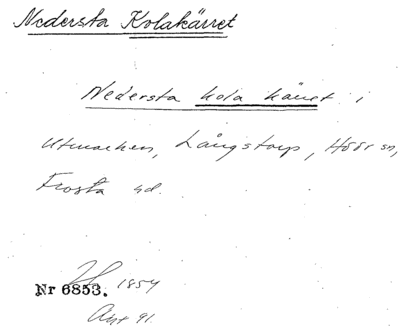 Nedersta Kolakärret
Nedersta kola käret i
Utmarken, Långstorp, Höör sn,
Frosta hd.
1854
Nr 6853.
Akt 91.